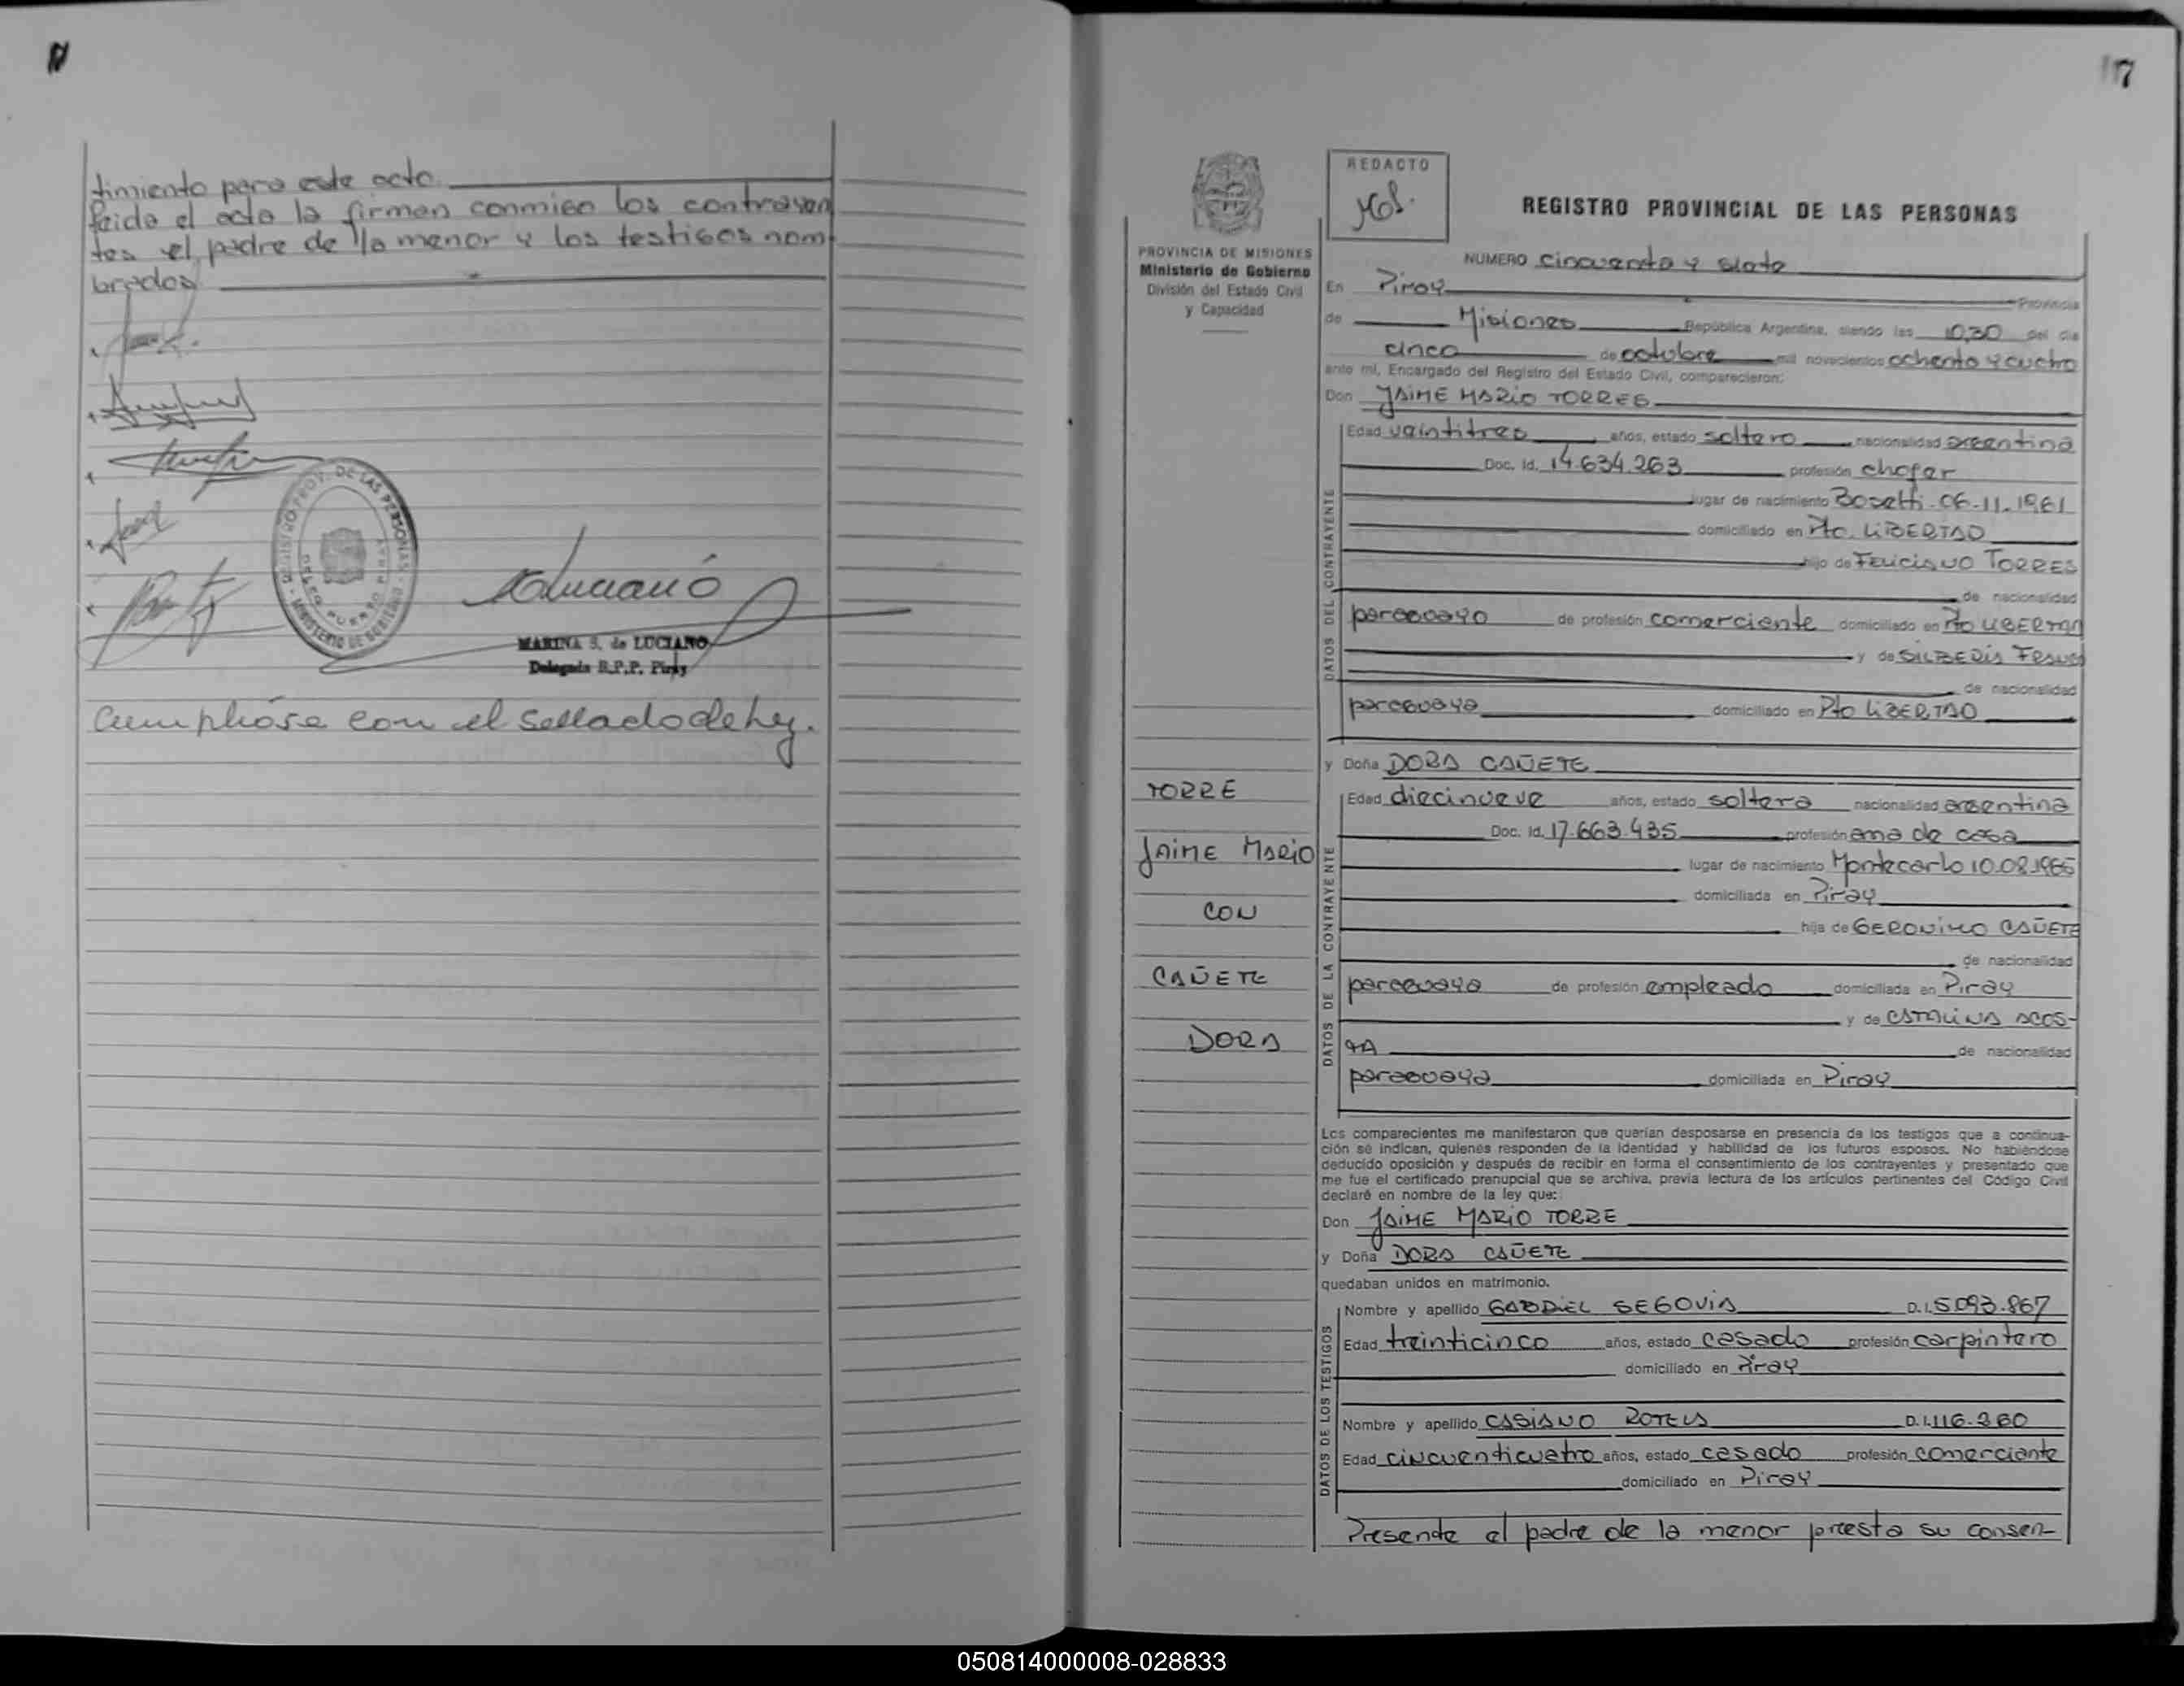 timiento para este acto.
leida el acta la firman conmigo los contrayen
tes el padre de la menor y los testigos nom
brados
MARINA S. de LUCIANO
Delegada R.P.P. Piray
Cumplióse con el sellado de ley.
17
PROVINCIA DE MISIONES
Ministerio de Gobierno
División del Estado Civil
y Capacidad
TORRE
JAIME MARIO
CON
CAÑETE
DORA
REDACTO
REGISTRO PROVINCIAL DE LAS PERSONAS
NUMERO cincuenta y siete
En Piray Provincia
de Misiones República Argentina, siendo las 10,30 del día
cinco de octubre mil novecientos ochenta y cuatro
ante mí, Encargado del Registro del Estado Civil, comparecieron:
Don JAIME MARIO TORRES
DATOS DEL CONTRAYENTE
Edad veintitres años, estado soltero nacionalidad argentina
Doc. Id. 14.634.263 profesión chofer
lugar de nacimiento Bosetti-06-11-1961
domiciliado en Pto. LIBERTAD
hijo de FELICIANO TORRES
de nacionalidad
paraguayo de profesión comerciante domiciliado en Pto LIBERTAD
y de
de nacionalidad
paraguaya domiciliado en Pto LIBERTAD
y Doña DORA CAÑETE
DATOS DE LA CONTRAYENTE
Edad diecinueve años, estado soltera nacionalidad argentina
Doc. Id. 17.663.435 profesión ama de casa
lugar de nacimiento Montecarlo 10.08.1965
domiciliada en Piray
hija de GERONIMO CAÑETE
de nacionalidad
paraguaya de profesión empleado domiciliada en Piray
y de CATALINA ACOS-
TA de nacionalidad
paraguaya domiciliada en Piray
Los comparecientes me manifestaron que querían desposarse en presencia de los testigos que a continua-
ción se indican, quienes responden de la identidad y habilidad de los futuros esposos. No habiéndose
deducido oposición y después de recibir en forma el consentimiento de los contrayentes y presentado que
me fue el certificado prenupcial que se archiva, previa lectura de los artículos pertinentes del Código Civil
declaré en nombre de la ley que:
Don JAIME MARIO TORRE
y Doña DORA CAÑETE
quedaban unidos en matrimonio.
DATOS DE LOS TESTIGOS
Nombre y apellido GABRIEL SEGOVIA D.I. 5.093.867
Edad treinticinco años, estado casado profesión carpintero
domiciliado en Piray
Nombre y apellido CASIANO ROTELA D.I. 116.260
Edad cincuenticuatro años, estado casado profesión comerciante
domiciliado en Piray
Presente el padre de la menor presta su consen-
050814000008-028833